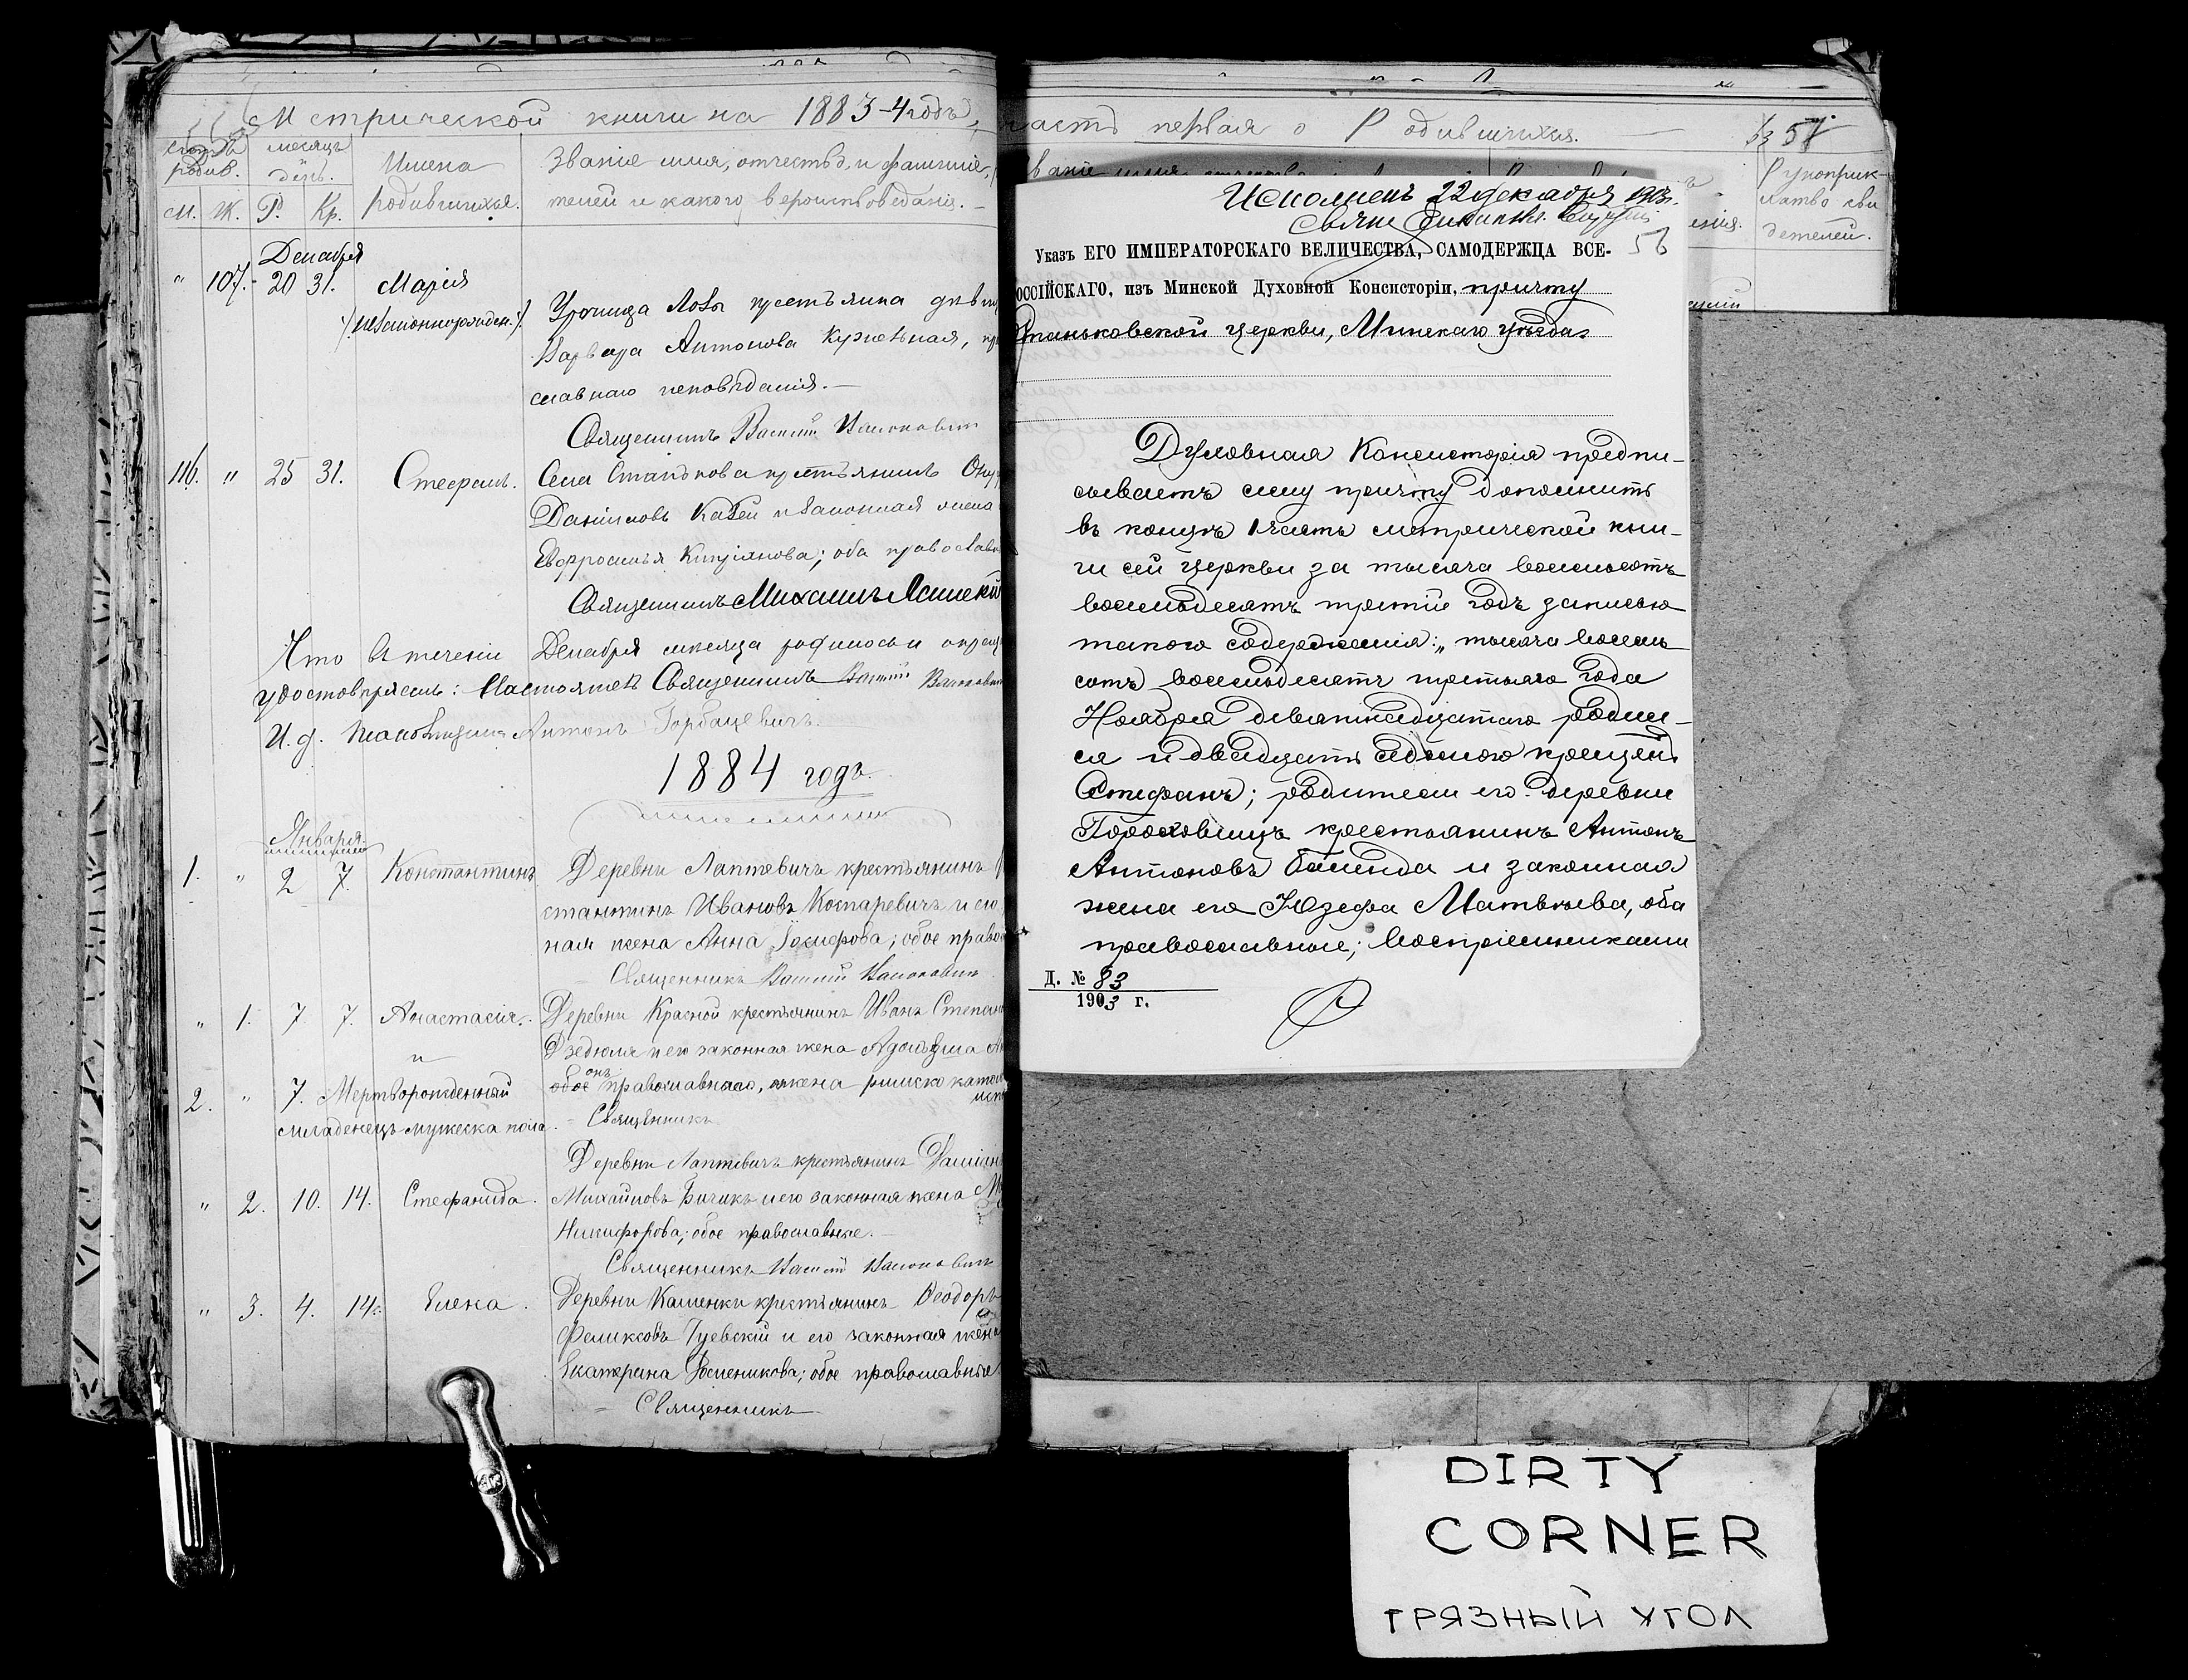 Метрической книги на 1883-4 годъ,
родив.
месяцъ
день.
Имена
родившихся.
Званіе имя, отчество, и фамиліе,
телей и какого вероисповеданія.
М. Ж. Р. Кр.
Декабря
" 107. 20 31. Марія
(незаконнорожден.)
Урочища Лозы крестьянина
Варвара Антонова
славнаго исповѣданія.
Священникъ Василій
116. " 25 31. Стефанъ.
Села Станькова крестьянинъ
Даніиловъ и законная жена
Евфросинія Кипріянова; оба православ
Священникъ Михаилъ
Что въ теченіи Декабря месяца родилось и окрещ
удостовѣряемъ: Настоятель Священникъ Василій
И. д. Псаломщика Антонъ Горбацевичъ.
1884 годъ.
Января
1. " 2 7. Константинъ
Деревни Лаптевичъ крестьянинъ
стантинъ Ивановъ Костаревичъ и его
ная жена Анна Іосифова; обое право
Священникъ Василій
" 1. 7 7. Анастасія.
и
Деревни Красной крестьянинъ Иванъ Степан
Дзедюля и его законная жена
онъ
обое православнаго, а жена римско катол
исп
2. " 7. Мертворожденный
младенецъ мужеска пола.
Священникъ
Деревни Лаптевичъ крестьянинъ Даміан
" 2. 10. 14. Стефанида.
Михайловъ Бичикъ и его законная жена
Никифорова; обое православные.
Священникъ Василій
" 3. 4. 14. Елена.
Деревни Каменки крестьянинъ Ѳеодоръ
Феликсовъ Гуевскій и его законная жена
Екатерина; обое православные
Священникъ
часть первая о Родившихся.
57
Рукоприк-
латво сви
детелей.
Исполненъ 22 декабря 1903 г.
Свящ.
56
Указъ ЕГО ИМПЕРАТОРСКАГО ВЕЛИЧЕСТВА, САМОДЕРЖЦА ВСЕ-
ОССІЙСКАГО, изъ Минской Духовной Консисторіи, причту
Станьковской церкви, Минскаго уѣзда.
Духовная Консисторія предпи-
сываетъ сему причту дополнить
въ концѣ 1 часть метрической кни-
ги сей церкви за тысяча восемьсотъ
восемьдесятъ третій годъ записью
такого содержанія: „тысяча восемь
сотъ восемьдесятъ третьяго года
Ноября девятнадцатаго родил-
ся и двадцать седьмого крещенъ
Стефанъ; родители его: деревни
Гороховищъ крестьянинъ Антонъ
Антоновъ Балѣнда и законная
жена его Юзефа Матвѣева, оба
православные; воспріемниками
Д. № 83
1903 г.
DIRTY
CORNER
ГРЯЗНЫЙ УГОЛ